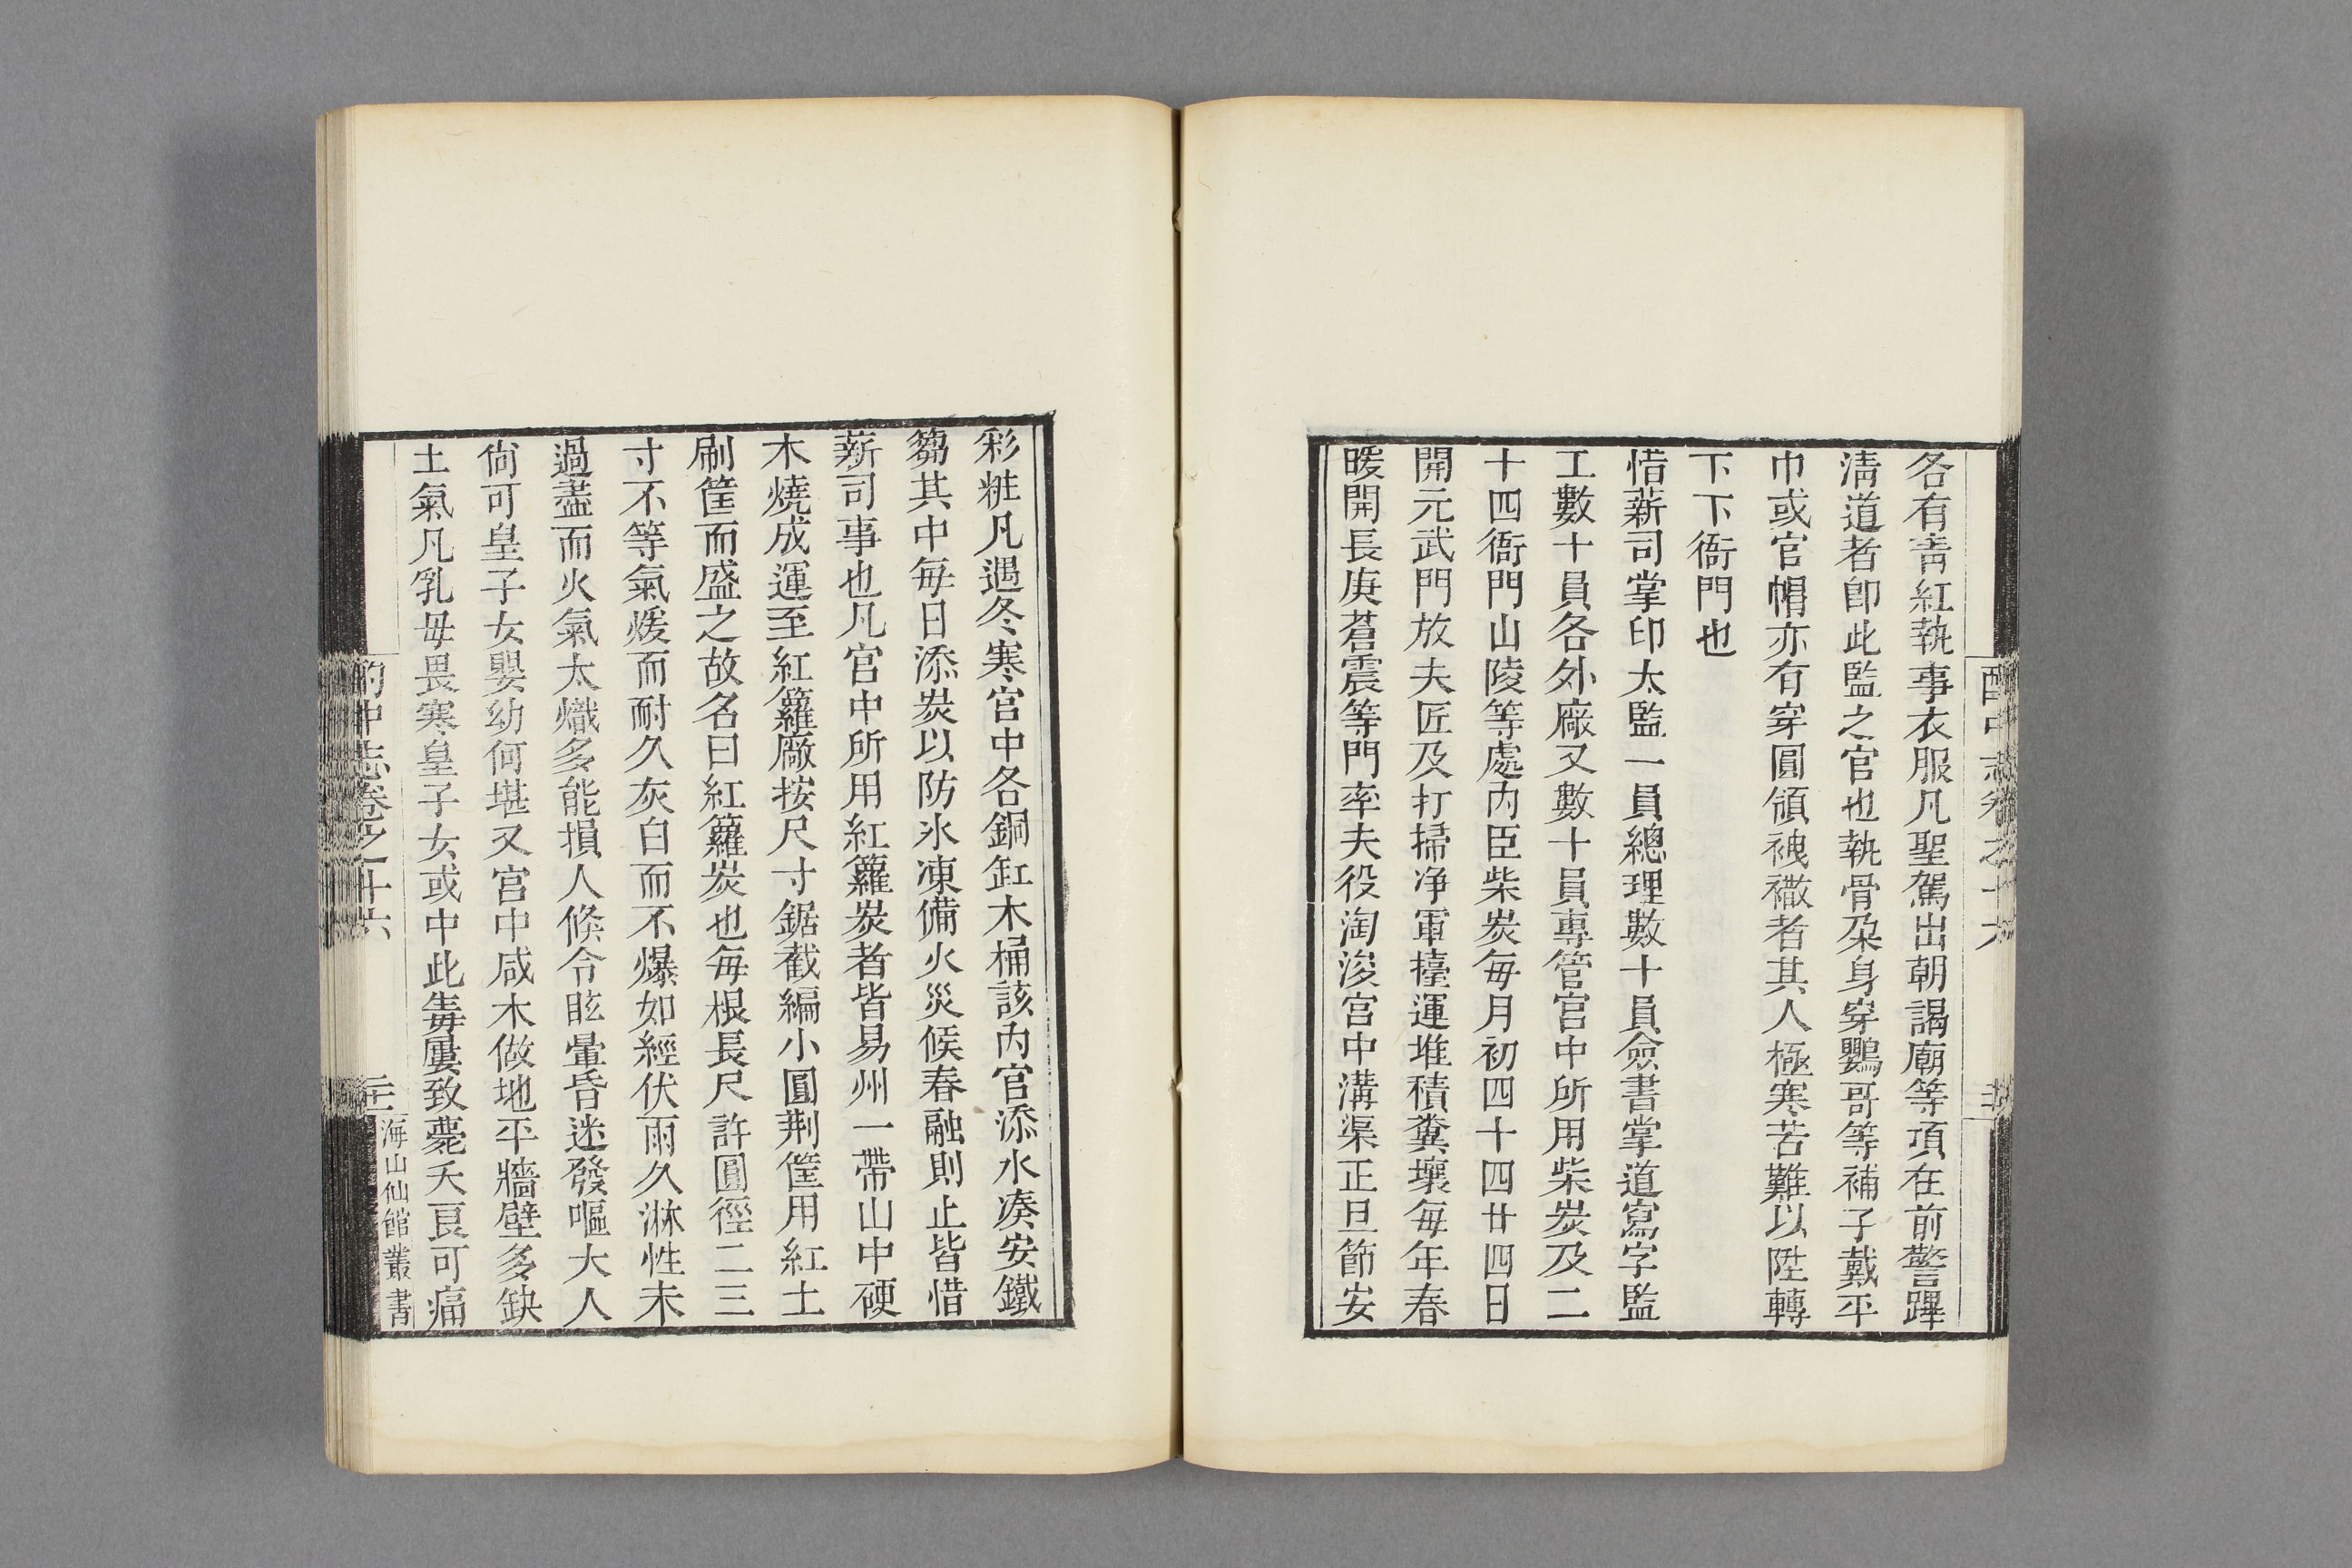 各有青紅執事衣服凡聖駕出朝謁廟等項在前警蹕
淸道者卽此監之官也執骨朶身穿鸚哥等補子戴平
巾或官帽亦有穿圓領襏襒者其人極寒苦難以陞轉
下下衙門也
惜薪司掌印太監一員總理數十員僉書掌道寫字監
工數十員各外廠又數十員專管宮中所用柴炭及二
十四衙門山陵等處內臣柴炭每月初四十四廿四日
開元武門放夫匠及打掃净軍擡運堆積糞壤每年春
暖開長庚蒼震等門率夫役淘浚宮中溝渠正旦節安
彩粧凡遇冬寒宮中各銅缸木桶該內官添水凑安鐵
篘其中每日添炭以防氷凍備火災候春融則止皆惜
薪司事也凡宮中所用紅籮炭者皆易州一帶山中硬
木燒成運至紅籮廠按尺寸鋸截編小圓荆筐用紅土
刷筐而盛之故名曰紅籮炭也每根長尺許圓徑二三
寸不等氣煖而耐久灰白而不爆如經伏雨久淋性未
過盡而火氣太熾多能損人倏令眩暈昏迷發嘔大人
尙可皇子女嬰幼何堪又宮中咸木做地平牆壁多缺
土氣凡乳母畏寒皇子女或中此毒屢致薨夭良可痛
酌中志卷之十六
海山仙館叢書